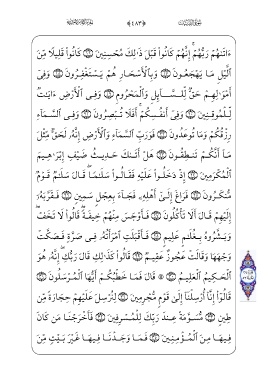 ءَاتَىٰهُمْ رَبُّهُمْ إِنَّهُمْ كَانُوا۟ قَبْلَ ذَٰلِكَ مُحْسِنِينَ ۝ كَانُوا۟ قَلِيلًا مِّنَ
ٱلَّيْلِ مَا يَهْجَعُونَ ۝ وَبِٱلْأَسْحَارِ هُمْ يَسْتَغْفِرُونَ ۝ وَفِىٓ
أَمْوَٰلِهِمْ حَقٌّ لِّلسَّآئِلِ وَٱلْمَحْرُومِ ۝ وَفِى ٱلْأَرْضِ ءَايَٰتٌ
لِّلْمُوقِنِينَ ۝ وَفِىٓ أَنفُسِكُمْ أَفَلَا تُبْصِرُونَ ۝ وَفِى ٱلسَّمَآءِ
رِزْقُكُمْ وَمَا تُوعَدُونَ ۝ فَوَرَبِّ ٱلسَّمَآءِ وَٱلْأَرْضِ إِنَّهُۥ لَحَقٌّ مِّثْلَ
مَآ أَنَّكُمْ تَنطِقُونَ ۝ هَلْ أَتَىٰكَ حَدِيثُ ضَيْفِ إِبْرَٰهِيمَ
ٱلْمُكْرَمِينَ ۝ إِذْ دَخَلُوا۟ عَلَيْهِ فَقَالُوا۟ سَلَٰمًا قَالَ سَلَٰمٌ قَوْمٌ
مُّنكَرُونَ ۝ فَرَاغَ إِلَىٰٓ أَهْلِهِۦ فَجَآءَ بِعِجْلٍ سَمِينٍ ۝ فَقَرَّبَهُۥٓ
إِلَيْهِمْ قَالَ أَلَا تَأْكُلُونَ ۝ فَأَوْجَسَ مِنْهُمْ خِيفَةً قَالُوا۟ لَا تَخَفْ
وَبَشَّرُوهُ بِغُلَٰمٍ عَلِيمٍ ۝ فَأَقْبَلَتِ ٱمْرَأَتُهُۥ فِى صَرَّةٍ فَصَكَّتْ
وَجْهَهَا وَقَالَتْ عَجُوزٌ عَقِيمٌ ۝ قَالُوا۟ كَذَٰلِكِ قَالَ رَبُّكِ إِنَّهُۥ هُوَ
ٱلْحَكِيمُ ٱلْعَلِيمُ ۝ قَالَ فَمَا خَطْبُكُمْ أَيُّهَا ٱلْمُرْسَلُونَ ۝
قَالُوٓا۟ إِنَّآ أُرْسِلْنَآ إِلَىٰ قَوْمٍ مُّجْرِمِينَ ۝ لِنُرْسِلَ عَلَيْهِمْ حِجَارَةً مِّن
طِينٍ ۝ مُّسَوَّمَةً عِندَ رَبِّكَ لِلْمُسْرِفِينَ ۝ فَأَخْرَجْنَا مَن كَانَ
فِيهَا مِنَ ٱلْمُؤْمِنِينَ ۝ فَمَا وَجَدْنَا فِيهَا غَيْرَ بَيْتٍ مِّنَ